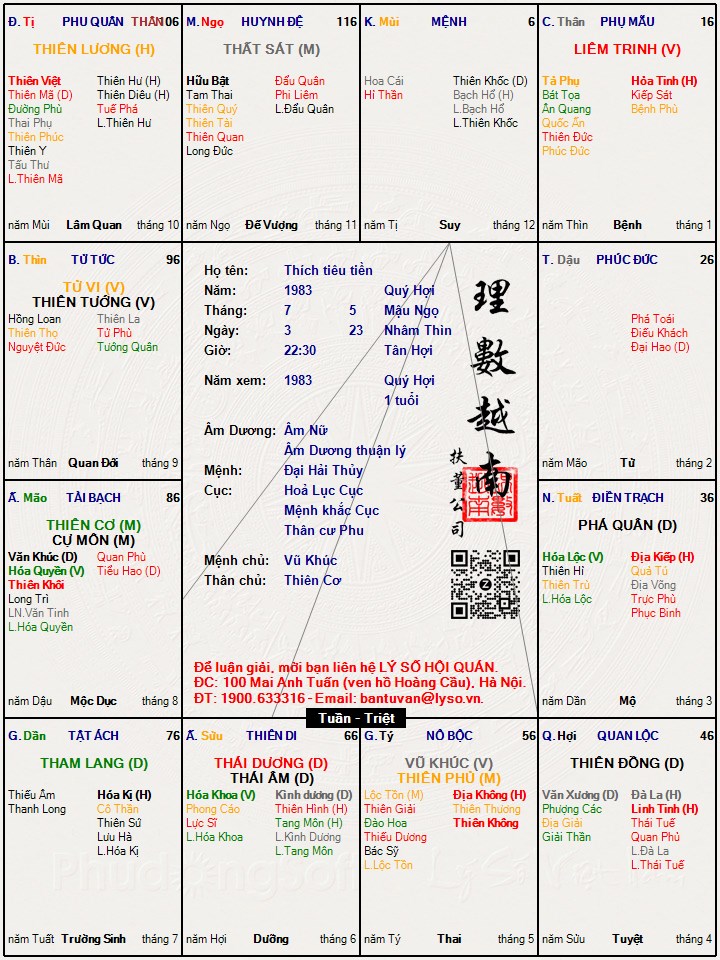 Đ. Tị PHU QUÂN THÂN106
THIÊN LƯƠNG (H)
Thiên Việt
Thiên Mã (D)
Đường Phù
Thai Phụ
Thiên Phúc
Thiên Y
Tấu Thư
L.Thiên Mã
Thiên Hư (H)
Thiên Diêu (H)
Tuế Phá
L.Thiên Hư
năm Mùi Lâm Quan tháng 10
M. Ngọ HUYNH ĐỆ 116
THẤT SÁT (M)
Hữu Bật
Tam Thai
Thiên Quý
Thiên Tài
Thiên Quan
Long Đức
Đẩu Quân
Phi Liêm
L.Đẩu Quân
năm Ngọ Đế Vượng tháng 11
K. Mùi MỆNH 6
Hoa Cái
Hỉ Thần
Thiên Khốc (D)
Bạch Hổ (H)
L.Bạch Hổ
L.Thiên Khốc
năm Tị Suy tháng 12
C. Thân PHỤ MẪU 16
LIÊM TRINH (V)
Tả Phụ
Bát Tọa
Ân Quang
Quốc Ấn
Thiên Đức
Phúc Đức
Hỏa Tinh (H)
Kiếp Sát
Bệnh Phù
năm Thìn Bệnh tháng 1
B. Thìn TỬ TỨC 96
TỬ VI (V)
THIÊN TƯỚNG (V)
Hồng Loan
Thiên Thọ
Nguyệt Đức
Thiên La
Tử Phù
Tướng Quân
năm Thân Quan Đới tháng 9
Họ tên: Thích tiêu tiền
Năm: 1983 Quý Hợi
Tháng: 7 5 Mậu Ngọ
Ngày: 3 23 Nhâm Thìn
Giờ: 22:30 Tân Hợi
Năm xem: 1983 Quý Hợi
1 tuổi
Âm Dương: Âm Nữ
Âm Dương thuận lý
Mệnh: Đại Hải Thủy
Cục: Hoả Lục Cục
Mệnh khắc Cục
Thân cư Phu
Mệnh chủ: Vũ Khúc
Thân chủ: Thiên Cơ
理數越南
扶董公司
Z
Để luận giải, mời bạn liên hệ LÝ SỐ HỘI QUÁN.
ĐC: 100 Mai Anh Tuấn (ven hồ Hoàng Cầu), Hà Nội.
ĐT: 1900.633316 - Email: bantuvan@lyso.vn.
Tuần - Triệt
T. Dậu PHÚC ĐỨC 26
Phá Toái
Điếu Khách
Đại Hao (D)
năm Mão Tử tháng 2
Ấ. Mão TÀI BẠCH 86
THIÊN CƠ (M)
CỰ MÔN (M)
Văn Khúc (D)
Hóa Quyền (V)
Thiên Khôi
Long Trì
LN.Văn Tinh
L.Hóa Quyền
Quan Phù
Tiểu Hao (D)
năm Dậu Mộc Dục tháng 8
N. Tuất ĐIỀN TRẠCH 36
PHÁ QUÂN (D)
Hóa Lộc (V)
Thiên Hỉ
Thiên Trù
L.Hóa Lộc
Địa Kiếp (H)
Quả Tú
Địa Võng
Trực Phù
Phục Binh
năm Dần Mộ tháng 3
G. Dần TẬT ÁCH 76
THAM LANG (D)
Thiếu Âm
Thanh Long
Hóa Kị (H)
Cô Thần
Thiên Sứ
Lưu Hà
L.Hóa Kị
năm Tuất Trường Sinh tháng 7
Ấ. Sửu THIÊN DI 66
THÁI DƯƠNG (D)
THÁI ÂM (D)
Hóa Khoa (V)
Phong Cáo
Lực Sĩ
L.Hóa Khoa
Kình dương (D)
Thiên Hình (H)
Tang Môn (H)
L.Kình Dương
L.Tang Môn
năm Hợi Dưỡng tháng 6
G. Tý NÔ BỘC 56
VŨ KHÚC (V)
THIÊN PHỦ (M)
Lộc Tồn (M)
Thiên Giải
Đào Hoa
Thiếu Dương
Bác Sỹ
L.Lộc Tồn
Địa Không (H)
Thiên Thương
Thiên Không
năm Tý Thai tháng 5
Q. Hợi QUAN LỘC 46
THIÊN ĐỒNG (D)
Văn Xương (D)
Phượng Các
Địa Giải
Giải Thần
Đà La (H)
Linh Tinh (H)
Thái Tuế
Quan Phủ
L.Đà La
L.Thái Tuế
năm Sửu Tuyệt tháng 4